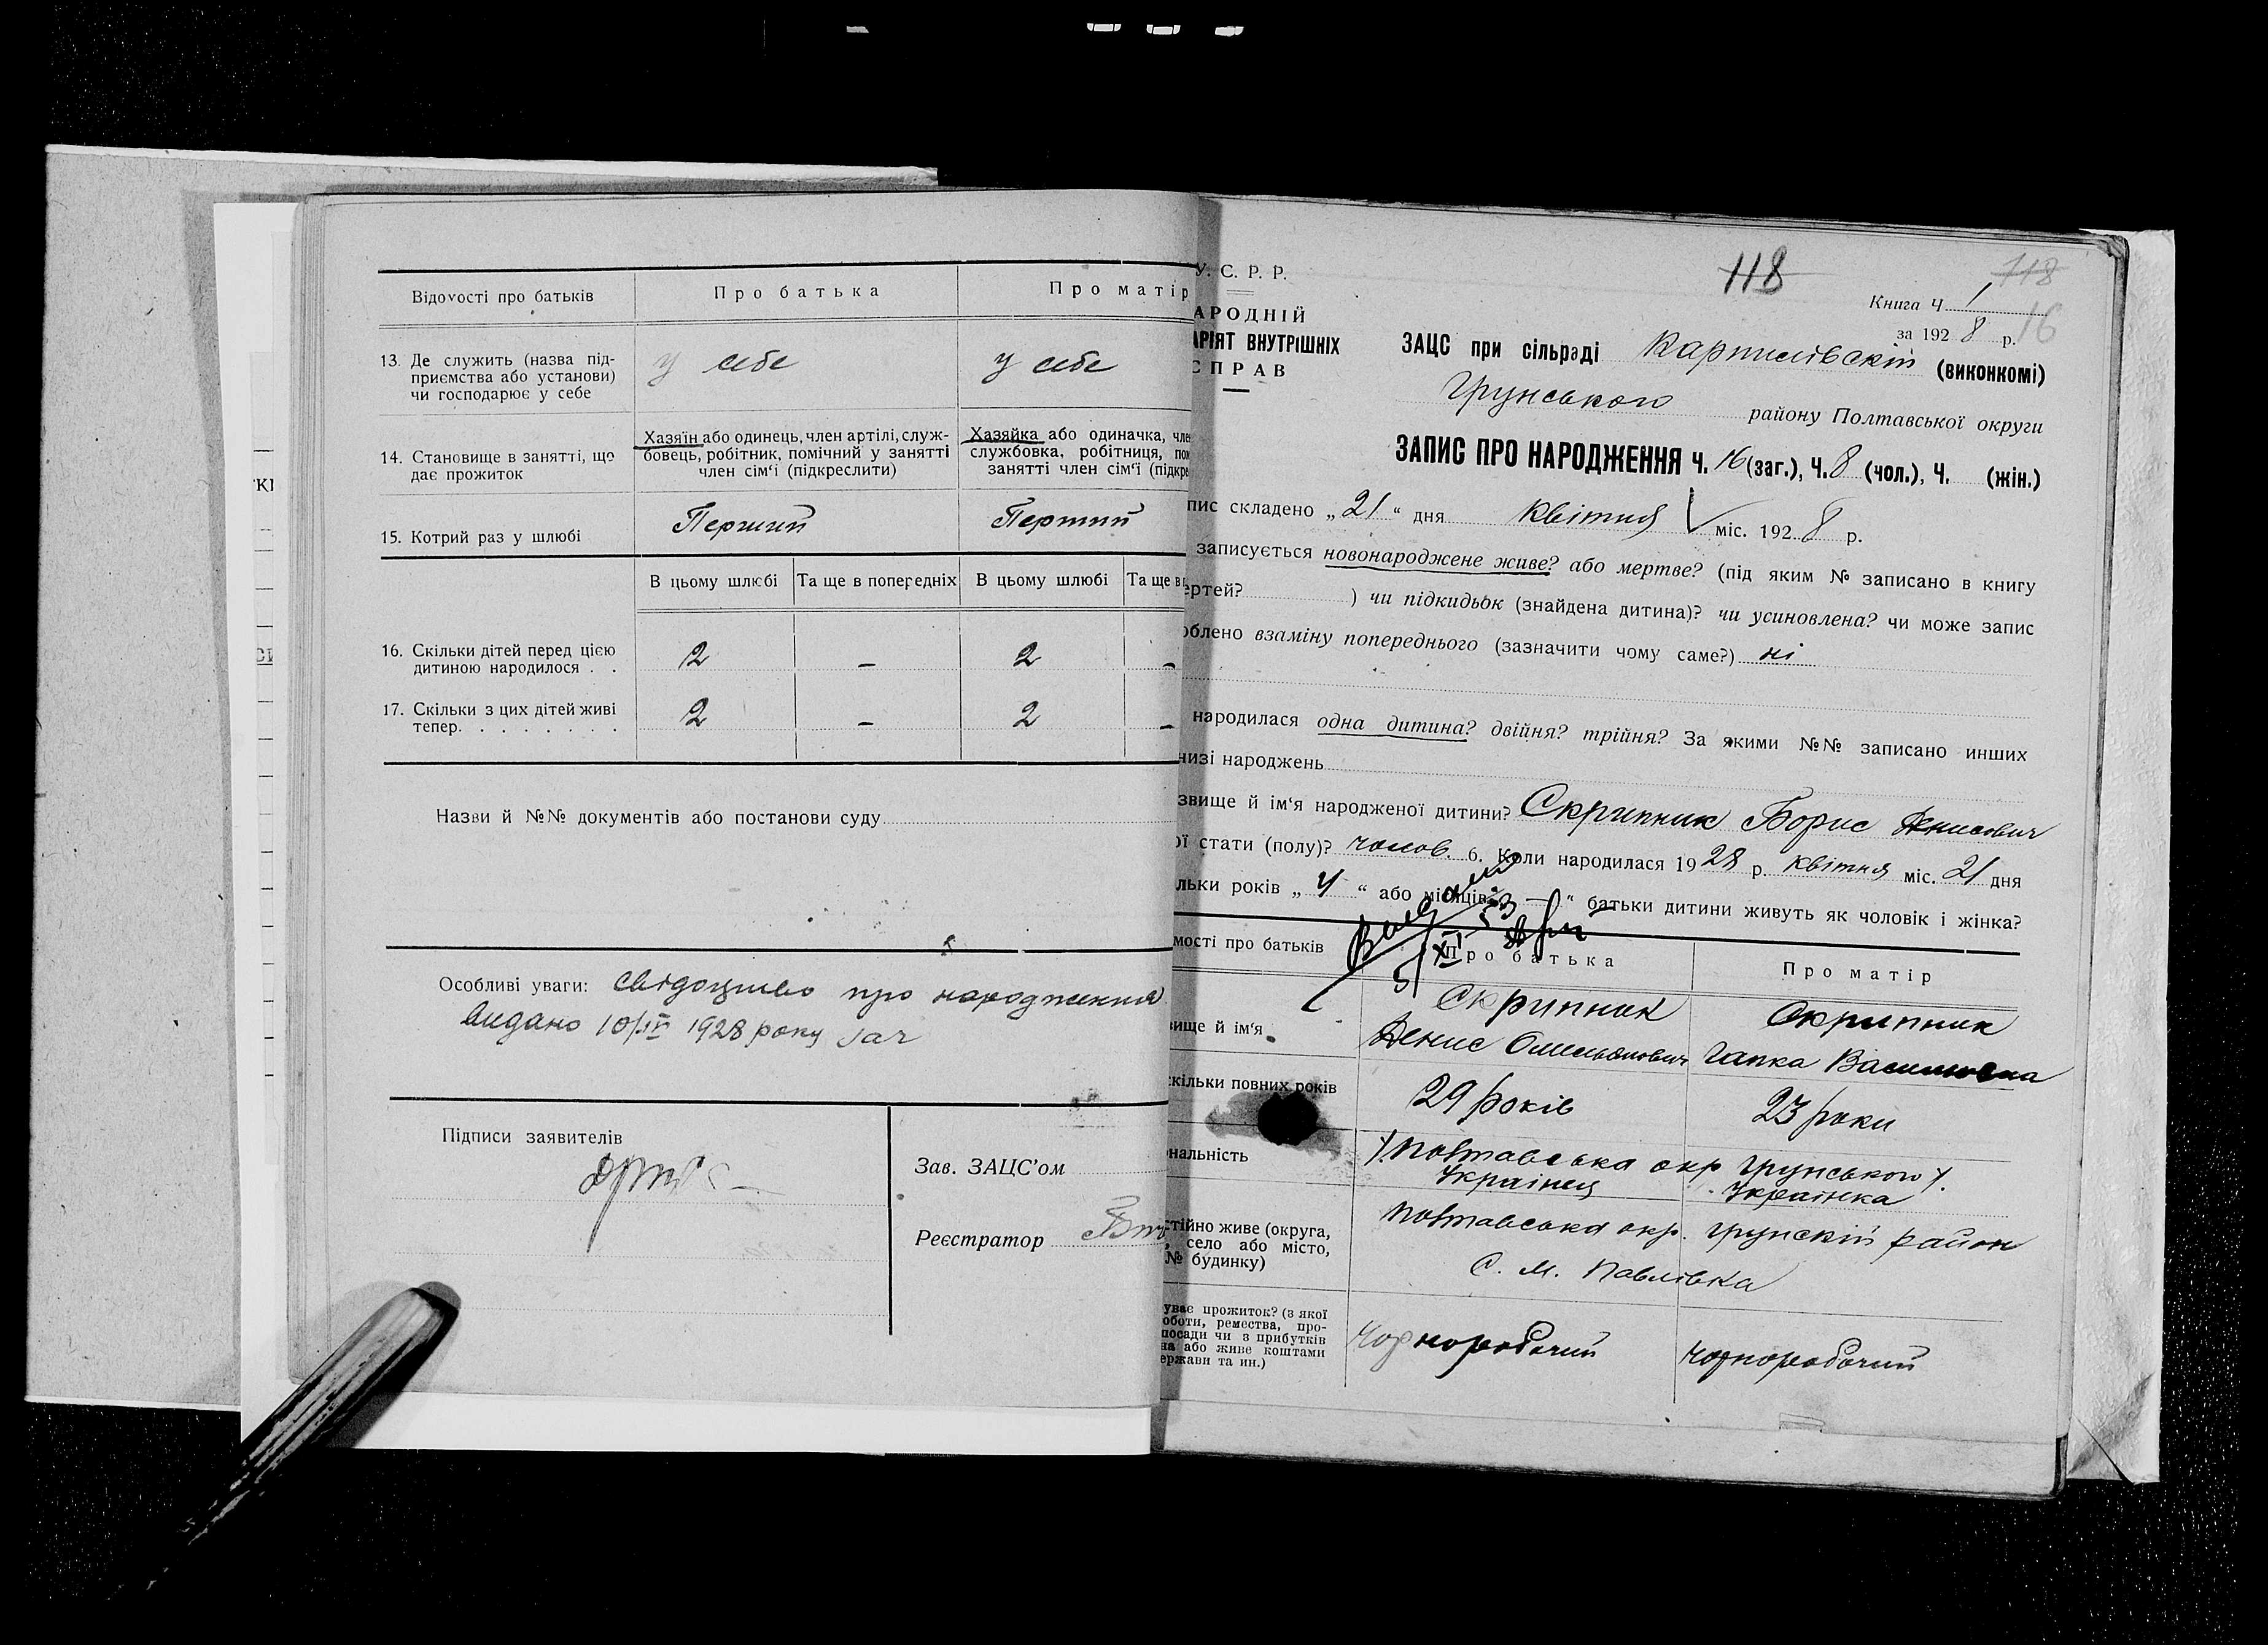 Відомості про батьків
Про батька
Про матір
13. Де служить (назва під-
приємства або установи)
чи господарює у себе
у себе
у себе
14. Становище в занятті, що
дає прожиток
Хазяїн або одинець, член артілі, служ-
бовець, робітник, помічний у занятті
член сім‘ї (підкреслити)
Хазяйка або одиначка, чле
службовка, робітниця, пом
занятті член сім‘ї (підкре
15. Котрий раз у шлюбі
Перший
Перший
В цьому шлюбі
Та ще в попередніх
В цьому шлюбі
Та ще в п
16. Скільки дітей перед цією
дитиною народилося . .
2 – 2 –
17. Скільки з цих дітей живі
тепер. . . . . . . .
2 – 2 –
Назви й №№ документів або постанови суду
Особливі уваги: свідоцтво про народження
видано 10/IV 1928 року
Підписи заявителів
Зав. ЗАЦС’ом
Реєстратор
118
118
16
У. С. Р. Р.
АРОДНІЙ
АРІЯТ ВНУТРІШНІХ
СПРАВ
Книга Ч 1
за 1928 р.
ЗАЦС при сільраді Карпилівскій (виконкомі)
Грунського району Полтавської округи
ЗАПИС ПРО НАРОДЖЕННЯ Ч. 16 (заг.), Ч. 8 (чол.), Ч. (жін.)
пис складено „21“ дня квітня міс. 1928 р.
записується новонароджене живе? або мертве? (під яким № записано в книгу
ертей? ) чи підкидьок (знайдена дитина)? чи усиновлена? чи може запис
облено взаміну попереднього (зазначити чому саме?) ні
народилася одна дитина? двійня? трійня? За якими №№ записано инших
низі народжень
звище й ім‘я народженої дитини? Скрипник Борис Денисович
ої стати (полу)? чолов. 6. Коли народилася 1928 р. квітня міс. 21 дня
льки років „4“ або місяців „—“ батьки дитини живуть як чоловік і жінка?
мості про батьків
Про батька
Про матір
вище й ім‘я
Скрипник
Денис Омельянович
Скрипник
Гапка Василівна
кільки повних років
29 років
23 роки
нальність
Полтавська окр Грунського
Українец
Українка
стійно живе (округа,
, село або місто,
№ будинку)
Полтавська окр. Грунскій район
С. М. Павлівка
уває прожиток? (з якої
оботи, ремества, про-
посади чи з прибутків
на або живе коштами
ержави та ин.)
Чорноробочий
Чорноробочий